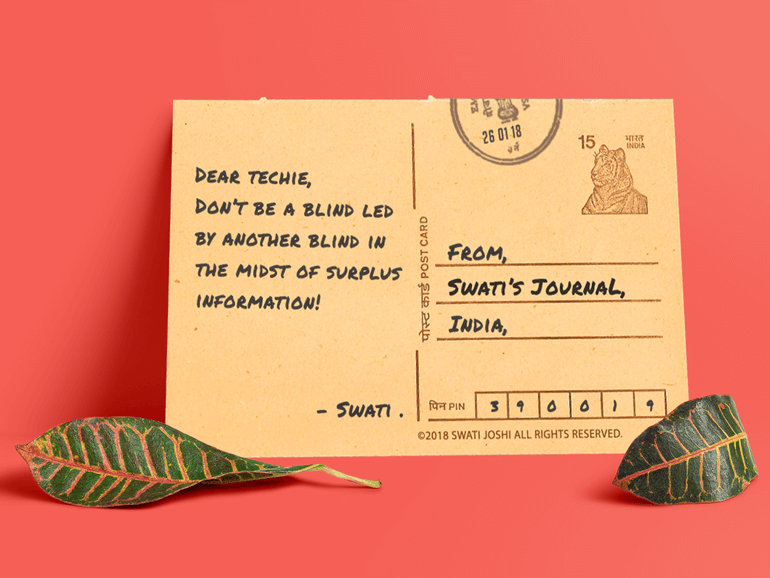 DEAR TECHIE,
DON'T BE A BLIND LED
BY ANOTHER BLIND IN
THE MIDST OF SURPLUS
INFORMATION!
- SWATI .
पोस्ट कार्ड POST CARD
26 01 18
15
भारत
INDIA
FROM,
SWATI'S JOURNAL,
INDIA,
पिन PIN 3 9 0 0 1 9
©2018 SWATI JOSHI ALL RIGHTS RESERVED.